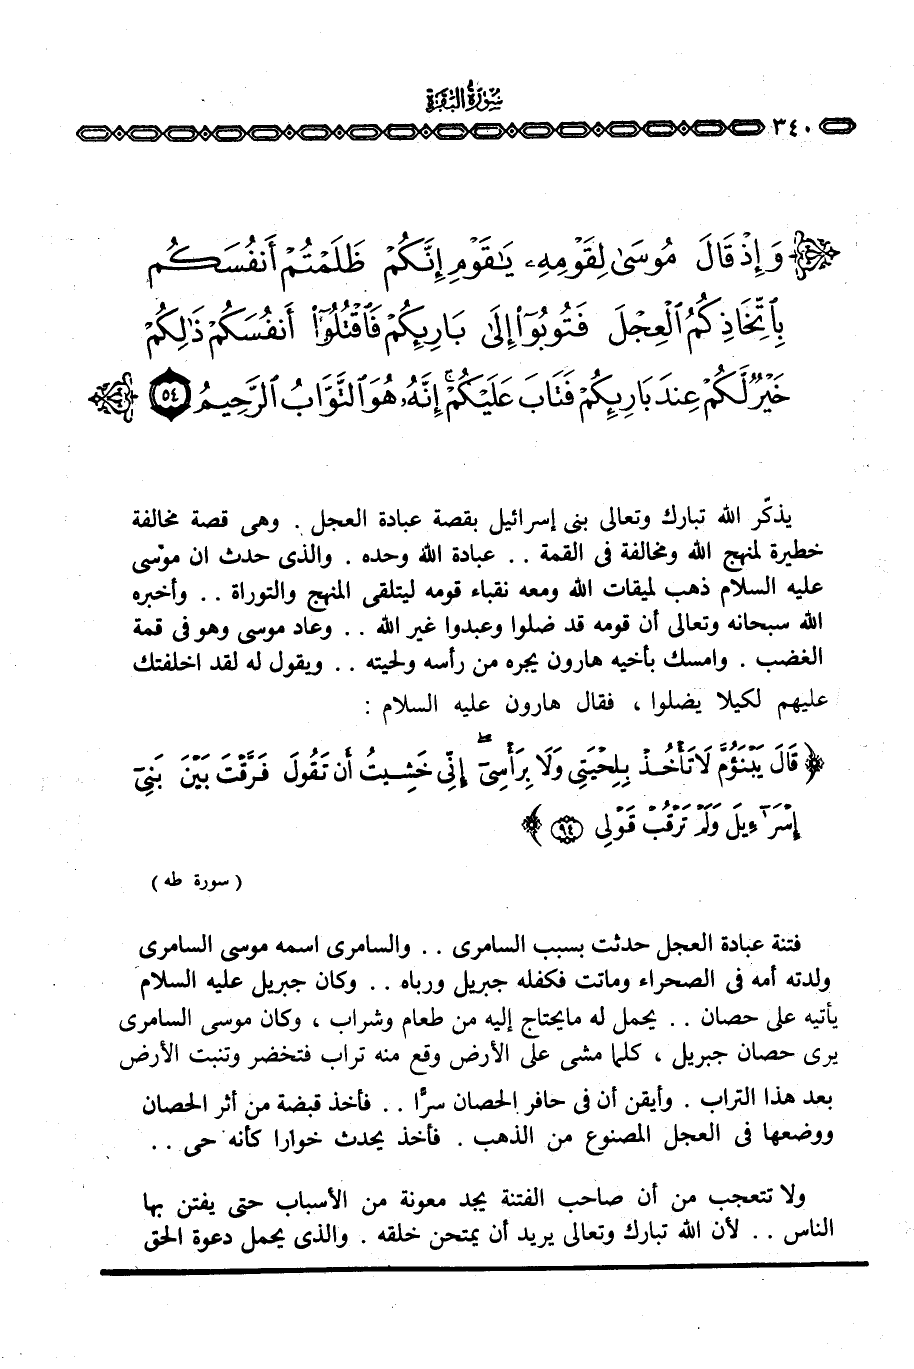 سورة البقرة
٣٤٠
وَإِذْ قَالَ مُوسَىٰ لِقَوْمِهِۦ يَـٰقَوْمِ إِنَّكُمْ ظَلَمْتُمْ أَنفُسَكُم
بِٱتِّخَاذِكُمُ ٱلْعِجْلَ فَتُوبُوٓا۟ إِلَىٰ بَارِئِكُمْ فَٱقْتُلُوٓا۟ أَنفُسَكُمْ ذَٰلِكُمْ
خَيْرٌ لَّكُمْ عِندَ بَارِئِكُمْ فَتَابَ عَلَيْكُمْ ۚ إِنَّهُۥ هُوَ ٱلتَّوَّابُ ٱلرَّحِيمُ ٥٤
يذكّر الله تبارك وتعالى بنى إسرائيل بقصة عبادة العجل . وهى قصة مخالفة
خطيرة لمنهج الله ومخالفة فى القمة .. عبادة الله وحده . والذى حدث ان موسى
عليه السلام ذهب لميقات الله ومعه نقباء قومه ليتلقى المنهج والتوراة .. وأخبره
الله سبحانه وتعالى أن قومه قد ضلوا وعبدوا غير الله .. وعاد موسى وهو فى قمة
الغضب . وامسك بأخيه هارون يجره من رأسه ولحيته .. ويقول له لقد اخلفتك
عليهم لكيلا يضلوا ، فقال هارون عليه السلام :
﴿ قَالَ يَبْنَؤُمَّ لَا تَأْخُذْ بِلِحْيَتِى وَلَا بِرَأْسِىٓ ۖ إِنِّى خَشِيتُ أَن تَقُولَ فَرَّقْتَ بَيْنَ بَنِىٓ
إِسْرَٰٓءِيلَ وَلَمْ تَرْقُبْ قَوْلِى ٩٤ ﴾
( سورة طه )
فتنة عبادة العجل حدثت بسبب السامرى .. والسامرى اسمه موسى السامرى
ولدته أمه فى الصحراء وماتت فكفله جبريل ورباه .. وكان جبريل عليه السلام
يأتيه على حصان .. يحمل له مايحتاج إليه من طعام وشراب ، وكان موسى السامرى
يرى حصان جبريل ، كلما مشى على الأرض وقع منه تراب فتخضر وتنبت الأرض
بعد هذا التراب . وأيقن أن فى حافر الحصان سرًّا .. فأخذ قبضة من أثر الحصان
ووضعها فى العجل المصنوع من الذهب . فأخذ يحدث خوارا كأنه حى ..
ولا تتعجب من أن صاحب الفتنة يجد معونة من الأسباب حتى يفتن بها
الناس .. لأن الله تبارك وتعالى يريد أن يمتحن خلقه . والذى يحمل دعوة الحق